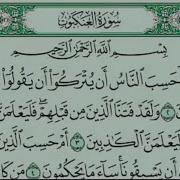 سُورَةُ العَنكَبُوتِ
بِسْمِ اللَّهِ الرَّحْمَٰنِ الرَّحِيمِ
أَحَسِبَ النَّاسُ أَن يُتْرَكُوٓا۟ أَن يَقُولُوٓا۟
٢ وَلَقَدْ فَتَنَّا الَّذِينَ مِن قَبْلِهِمْ فَلَيَعْلَمَنَّ
لَيَعْلَمَنَّ الْكَٰذِبِينَ ٣ أَمْ حَسِبَ الَّذِينَ
أَن يَسْبِقُونَا سَآءَ مَا يَحْكُمُونَ ٤ مَن كَا